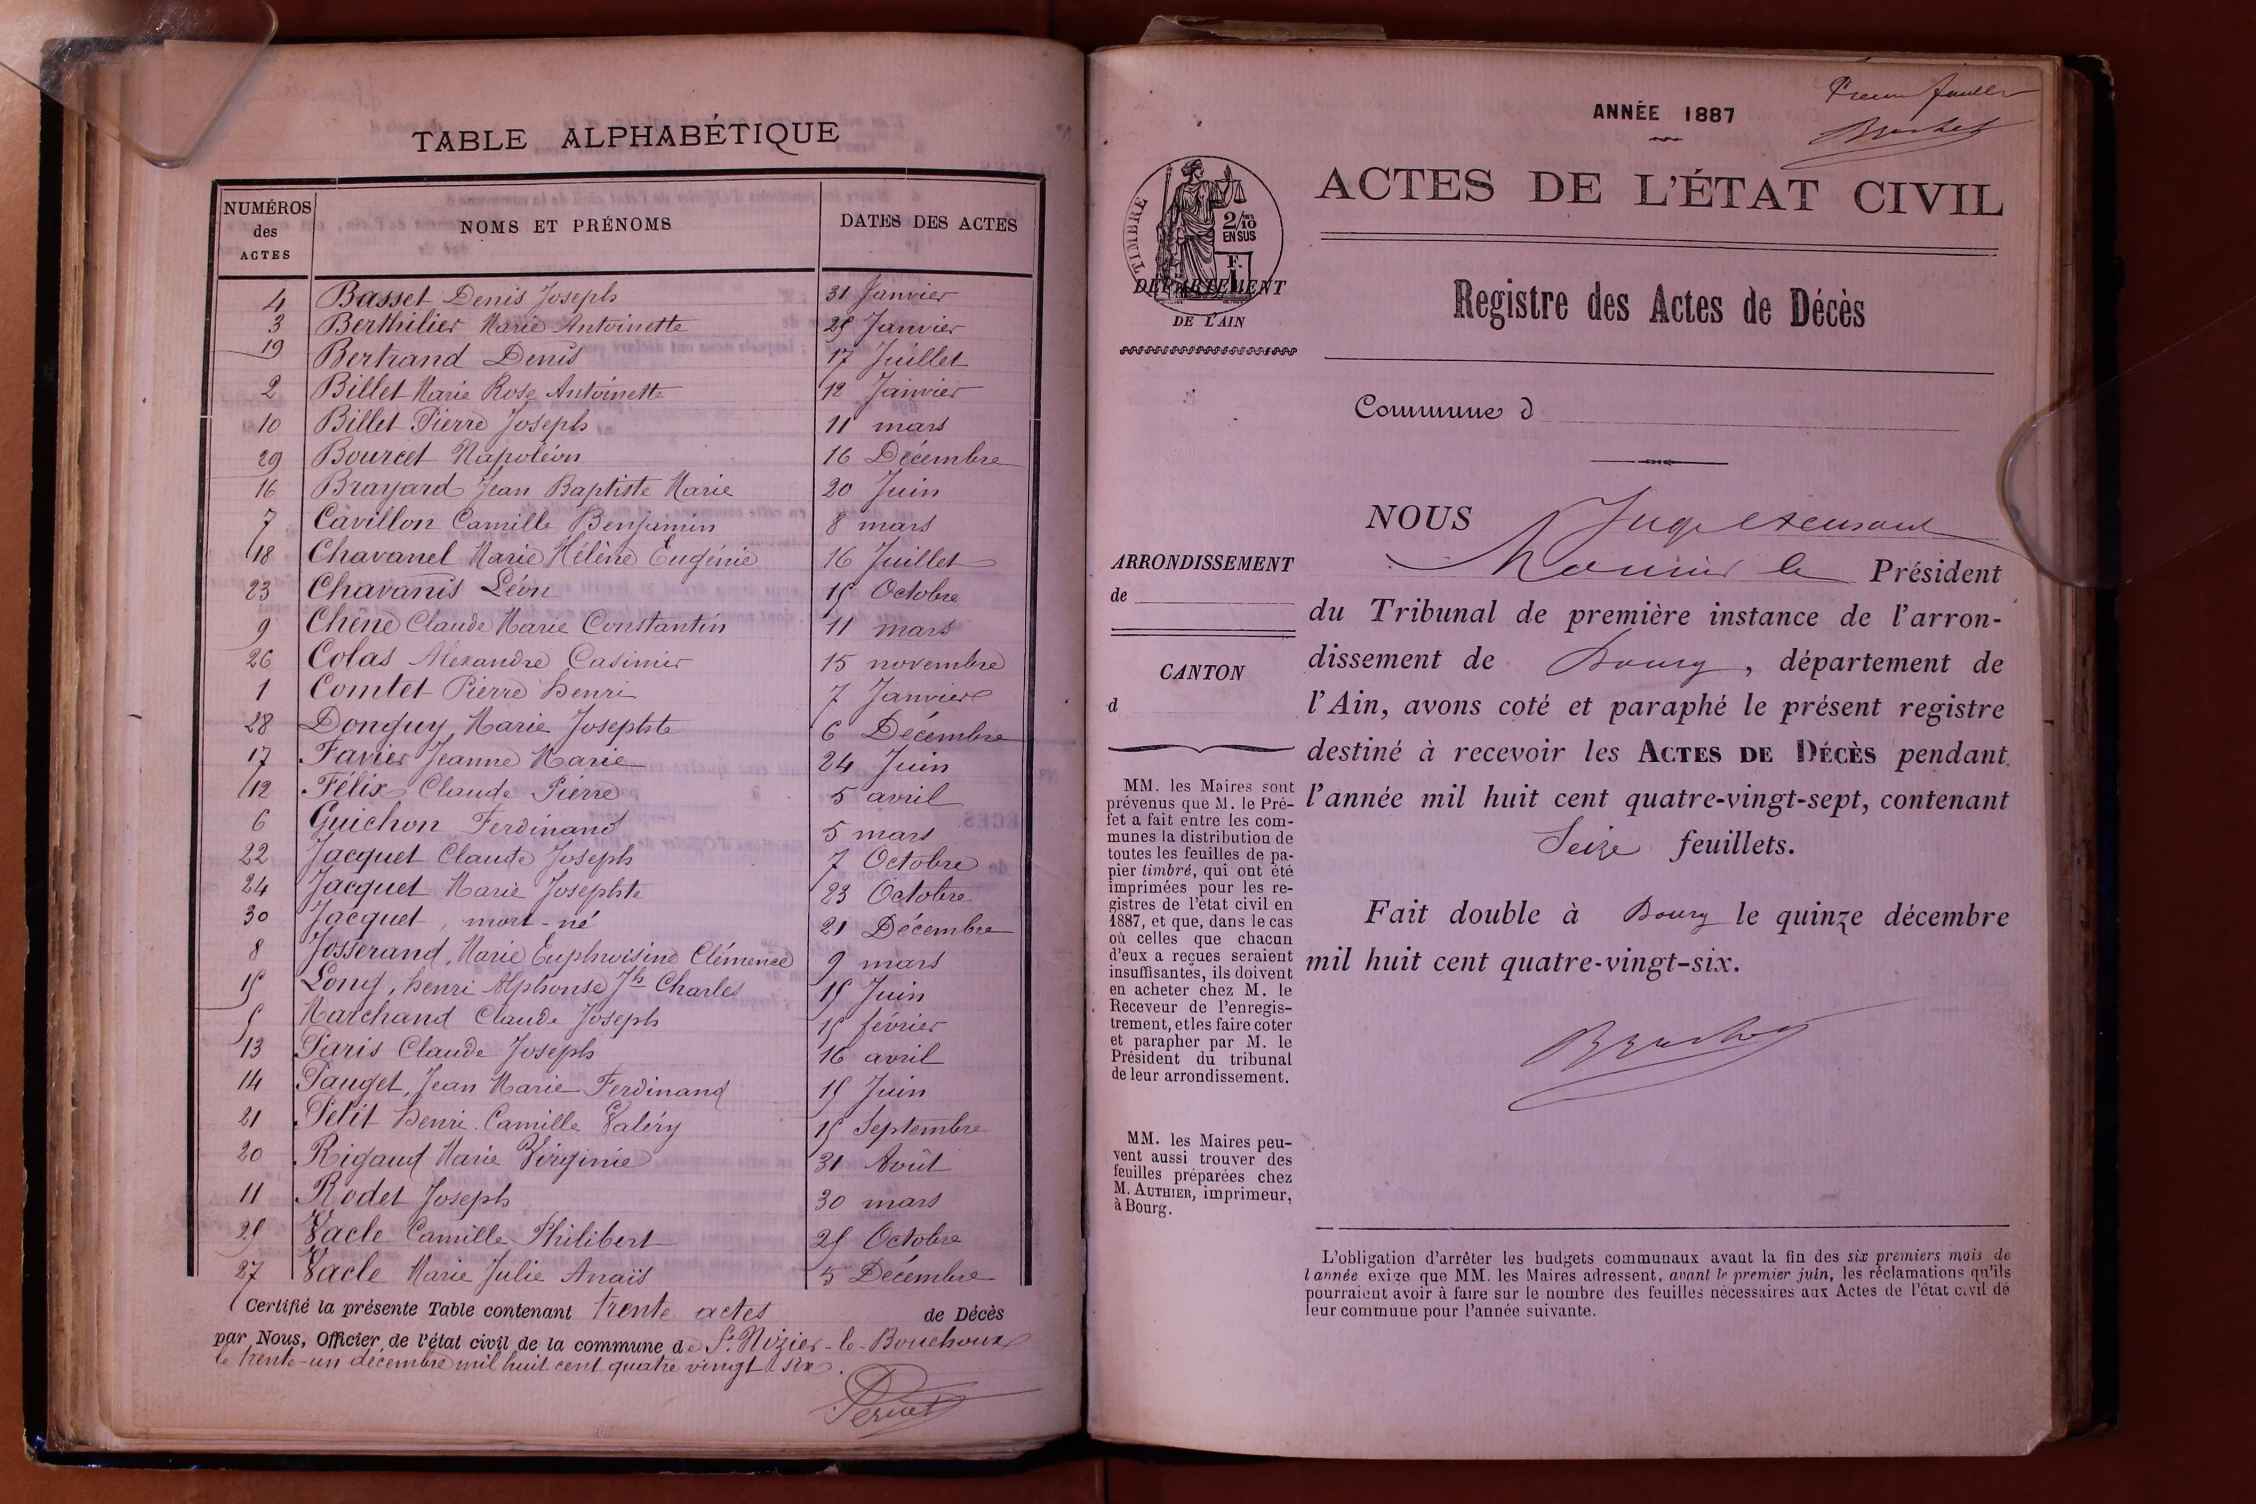 TABLE ALPHABÉTIQUE
NUMÉROS des ACTES NOMS ET PRÉNOMS DATES DES ACTES
4 Basset Denis Joseph 31 Janvier
3 Berthilier Marie Antoinette 25 Janvier
19 Bertrand Denis 17 Juillet
2 Billet Marie Rose Antoinette 12 Janvier
10 Billet Pierre Joseph 11 mars
29 Bourcet Napoléon 16 Décembre
16 Brayard Jean Baptiste Marie 20 Juin
7 Cavillon Camille Benjamin 8 mars
18 Chavanel Marie Hélène Eugénie 16 Juillet
23 Chavanis Léon 15 Octobre
9 Chêne Claude Marie Constantin 11 mars
26 Colas Alexandre Casimier 15 novembre
1 Comtet Pierre henri 7 Janvier
28 Donguy, Marie Josephte 6 Décembre
17 Favier Jeanne Marie 24 Juin
12 Félix Claude Pierre 5 avril
6 Guichon Ferdinand 5 mars
22 Jacquet Claude Joseph 7 Octobre
24 Jacquet Marie Josephte 23 Octobre
30 Jacquet, mort-né 21 Décembre
8 Josserand, Marie Euphroisine Clémence 9 mars
15 Long, henri Alphonse Jh Charles 15 Juin
5 Marchand Claude Joseph 15 février
13 Paris Claude Joseph 16 avril
14 Pauget, Jean Marie Ferdinand 15 Juin
21 Petit henri Camille Valéry 15 Septembre
20 Rigaud Marie Virginie 31 Août
11 Rodet Joseph 30 mars
25 Vacle Camille Philibert 25 Octobre
27 Vacle Marie Julie Anaïs 5 Décembre
Certifié la présente Table contenant trente actes de Décès
par Nous, Officier de l'état civil de la commune de St Nizier-le-Bouchoux
le trente-un décembre mil huit cent quatre vingt six.
Pernet
ANNÉE 1887
TIMBRE
2/10 EN SUS
F. 1
DÉPARTEMENT
DE L'AIN
ACTES DE L'ÉTAT CIVIL
Registre des Actes de Décès
Commune d
ARRONDISSEMENT
de
CANTON
d
MM. les Maires sont
prévenus que M. le Pré-
fet a fait entre les com-
munes la distribution de
toutes les feuilles de pa-
pier timbré, qui ont été
imprimées pour les re-
gistres de l'état civil en
1887, et que, dans le cas
où celles que chacun
d'eux a reçues seraient
insuffisantes, ils doivent
en acheter chez M. le
Receveur de l'enregis-
trement, et les faire coter
et parapher par M. le
Président du tribunal
de leur arrondissement.
MM. les Maires peu-
vent aussi trouver des
feuilles préparées chez
M. AUTHIER, imprimeur,
à Bourg.
NOUS Juge
le Président
du Tribunal de première instance de l'arron-
dissement de Bourg, département de
l'Ain, avons coté et paraphé le présent registre
destiné à recevoir les ACTES DE DÉCÈS pendant
l'année mil huit cent quatre-vingt-sept, contenant
Seize feuillets.
Fait double à Bourg le quinze décembre
mil huit cent quatre-vingt-six.
L'obligation d'arrêter les budgets communaux avant la fin des six premiers mois de
l'année exige que MM. les Maires adressent, avant le premier juin, les réclamations qu'ils
pourraient avoir à faire sur le nombre des feuilles nécessaires aux Actes de l'état civil de
leur commune pour l'année suivante.